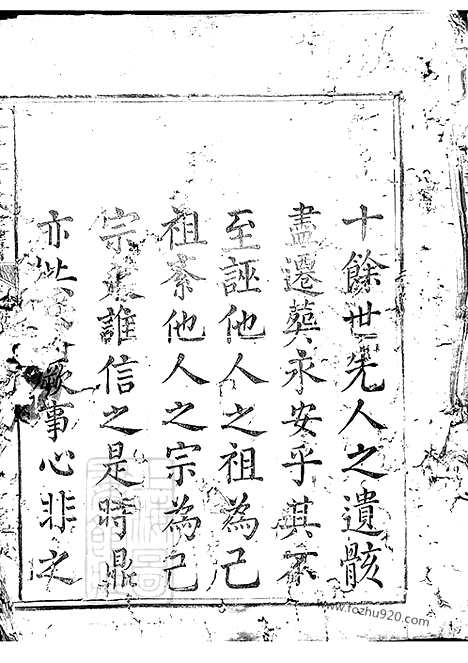 十餘世先人之遺骸
盡遷葬永安乎其不
至誣他人之祖為己
祖紊他人之宗為己
宗誰信之是時鼎
亦歎事心非之
www.fozhu920.com